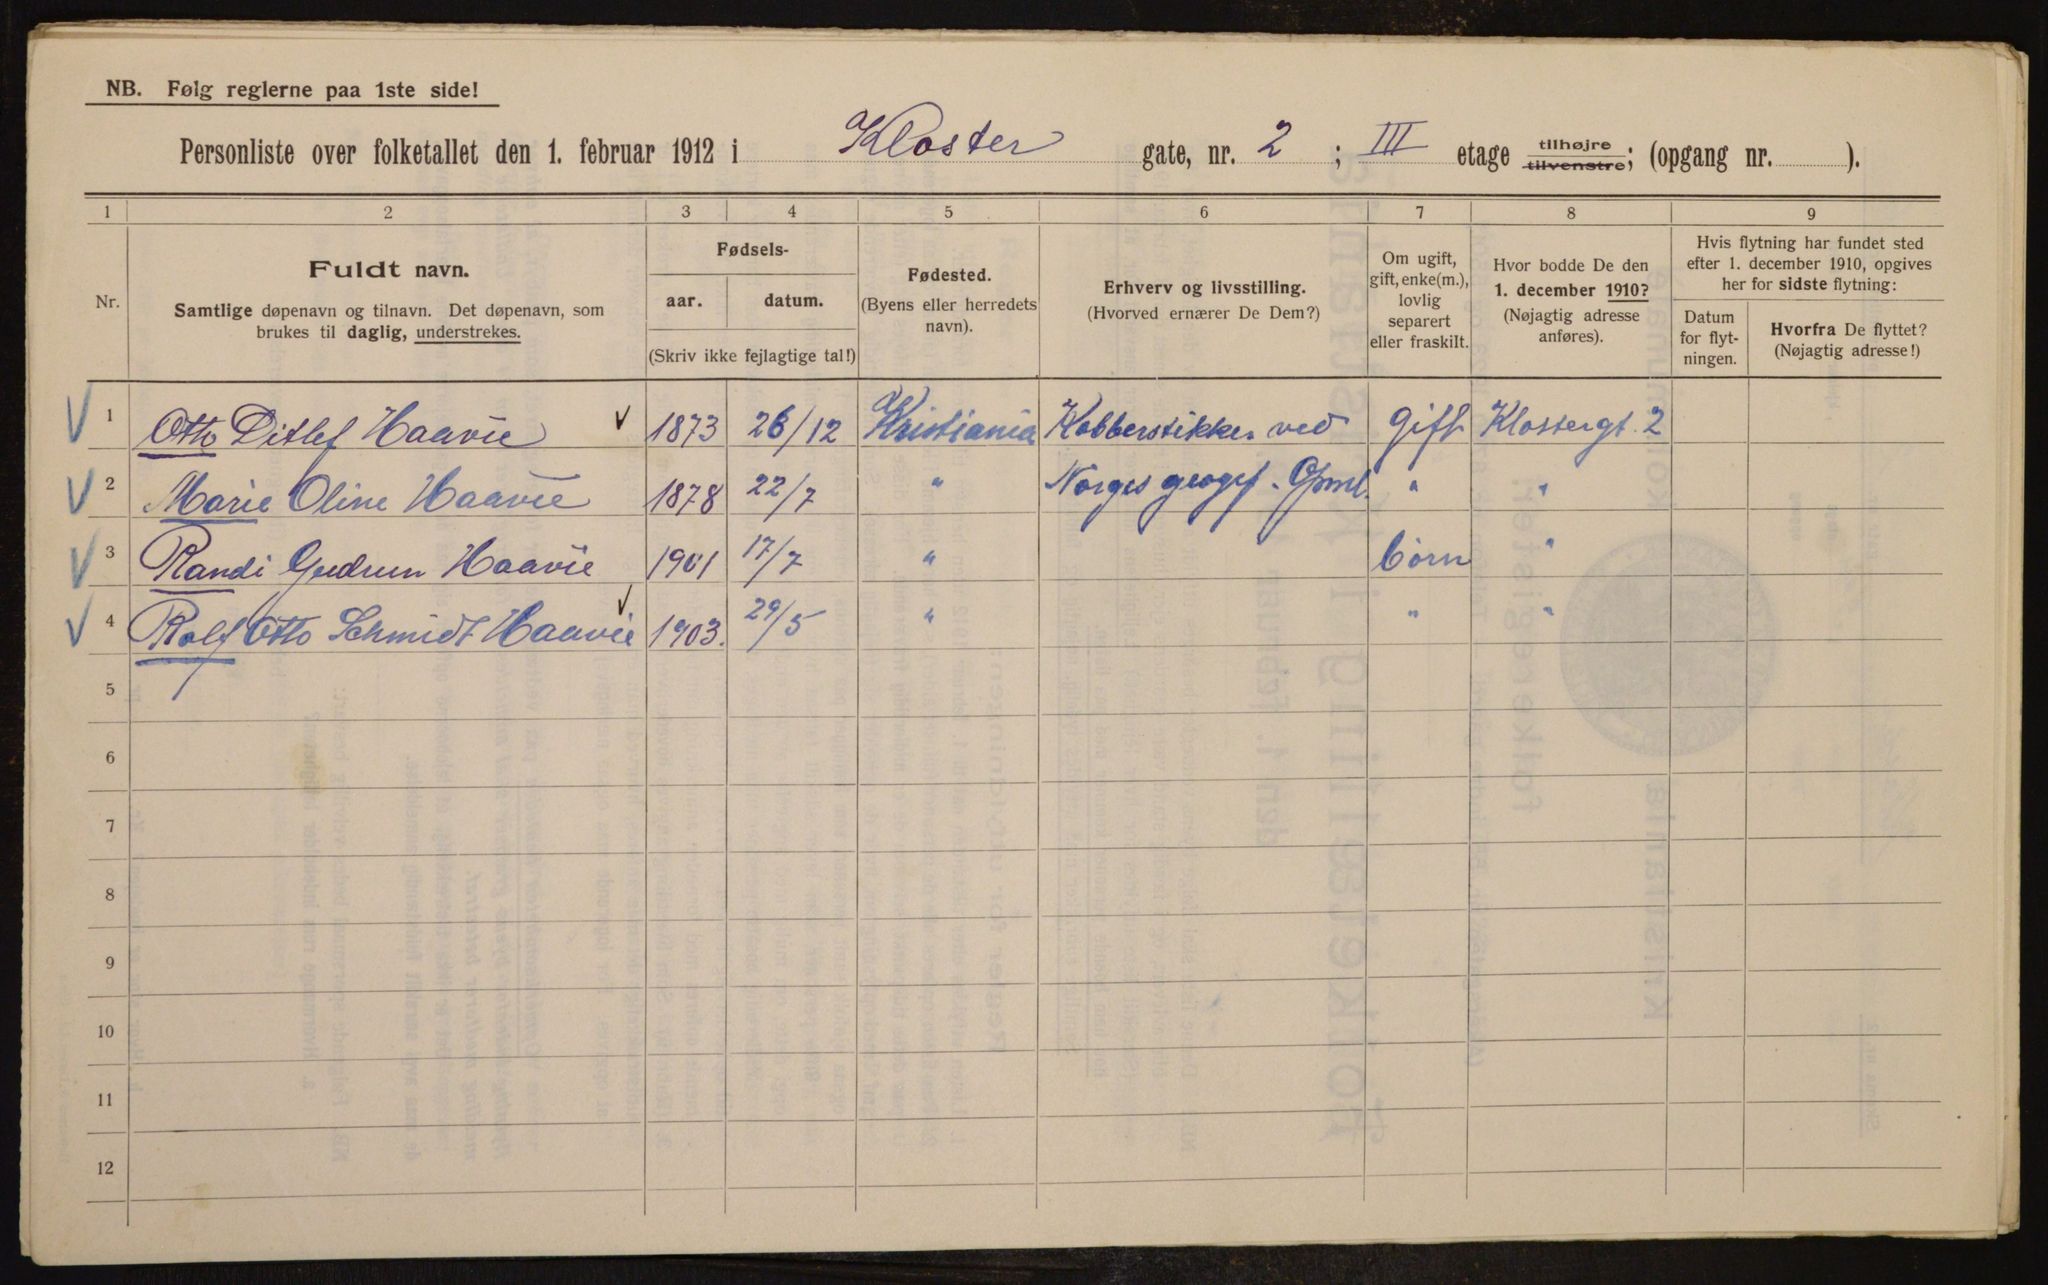 NB. Følg reglerne paa 1ste side!
Personliste over folketallet den 1. februar 1912 i Kloster gate, nr. 2 ; III etage tilhøjre tilvenstre; (opgang nr. ).
1 2 3 4 5 6 7 8 9
Nr.
Fuldt navn.
Samtlige døpenavn og tilnavn. Det døpenavn, som
brukes til daglig, understrekes.
Fødsels-
aar. datum.
(Skriv ikke fejlagtige tal!)
Fødested.
(Byens eller herredets
navn).
Erhverv og livsstilling.
(Hvorved ernærer De Dem?)
Om ugift,
gift, enke(m.),
lovlig
separert
eller fraskilt.
Hvor bodde De den
1. december 1910?
(Nøjagtig adresse
anføres).
Hvis flytning har fundet sted
efter 1. december 1910, opgives
her for sidste flytning:
Datum
for flyt-
ningen.
Hvorfra De flyttet?
(Nøjagtig adresse!)
1 Otto Ditlef Haavie 1873 26/12 Kristiania Kobberstikker ved gift Klostergt. 2
2 Marie Oline Haavie 1878 22/7 " Norges geogrf. Opml. " "
3 Randi Gudrun Haavie 1901 17/7 " børn "
4 Rolf Otto Schmidt Haavie 1903. 29/5 " " "
5
6
7
8
9
10
11
12